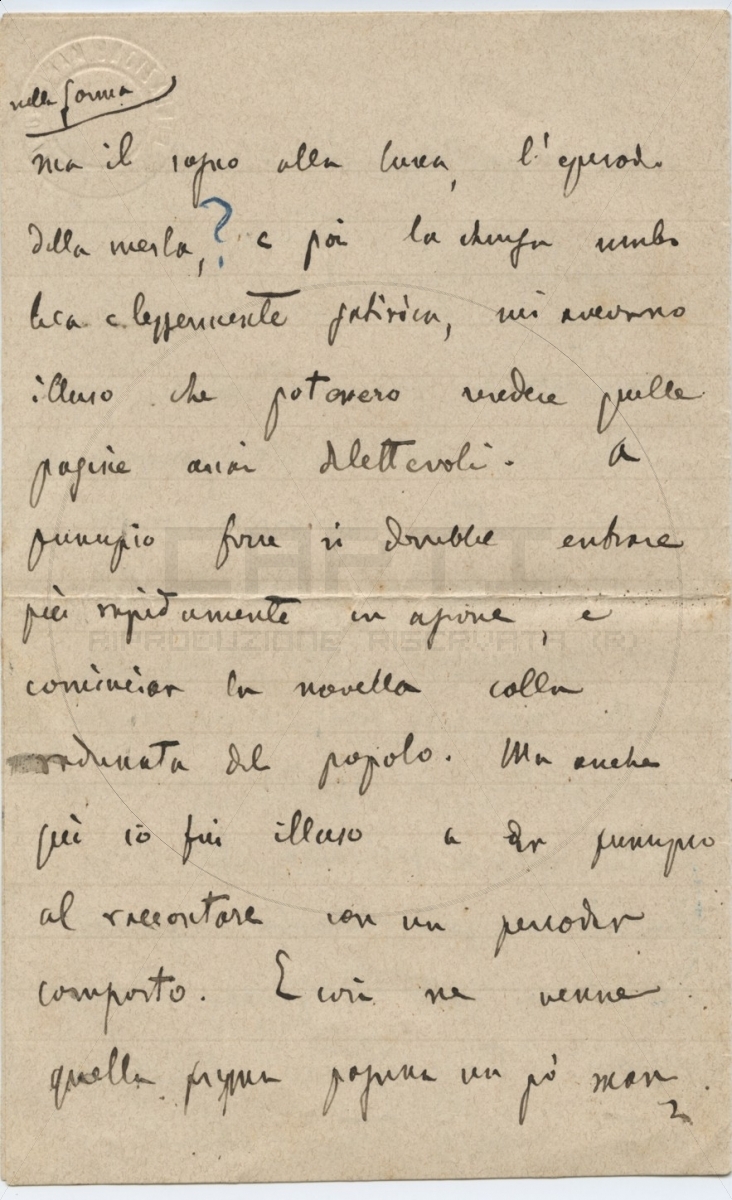 nella forma
ma il sogno alla luna, l'episodio
della merla,? e poi la chiusa simbo
lica e leggermente satirica, mi avevano
illuso che potessero rendere quelle
pagine assai dilettevoli. A
principio forse si dovrebbe entrare
più rapidamente in azione, e
cominciar la novella colla
radunata del popolo. Ma anche
qui io fui illuso a dar principio
al raccontare con un periodar
composto. E così ne venne
quella prima pagina un pò
CARTI
RIPRODUZIONE RISERVATA (R)